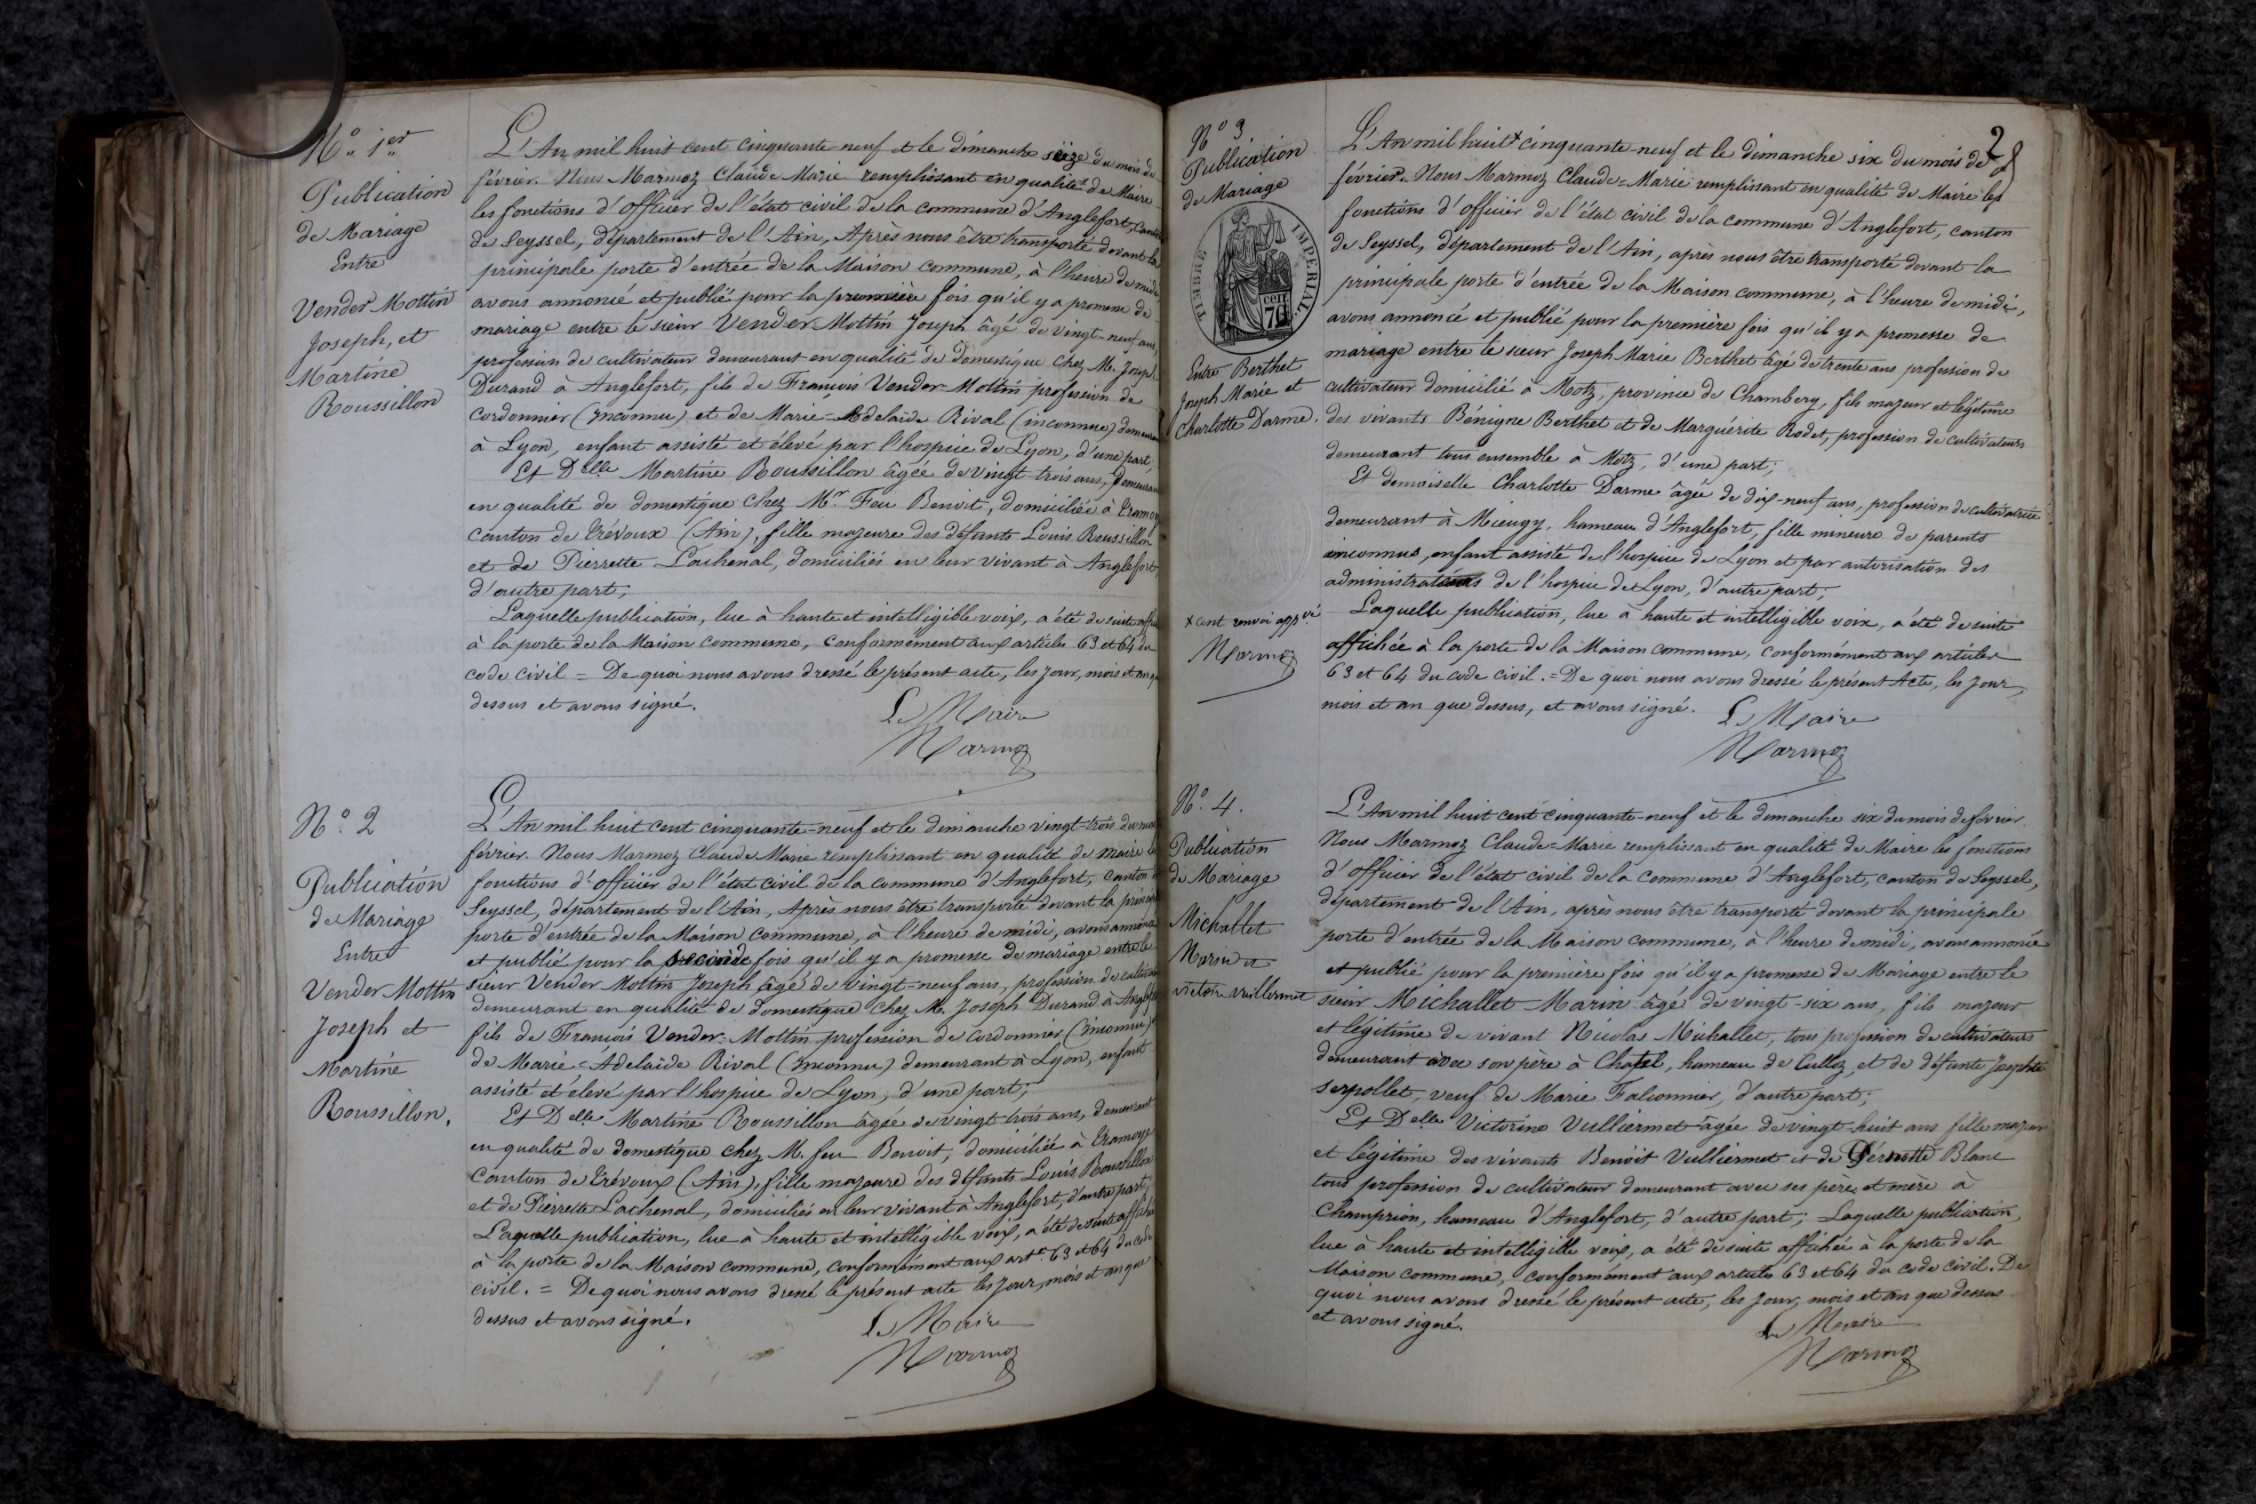 N.o 1er
Publication
de Mariage
Entre
Vender Mottin
Joseph, et
Martine
Roussillon
L'An mil huit cent cinquante neuf et le dimanche seize du mois de
février. Nous Marmoz Claude Marie remplissant en qualité de Maire
les fonctions d'officier de l'état civil de la commune d'Anglefort, canton
de Seyssel, département de l'Ain, Après nous être transporté devant la
principale porte d'entrée de la Maison commune, à l'heure de midi
avons annoncé et publié pour la première fois qu'il y a promesse de
mariage entre le sieur Vender Mottin Joseph âgé de vingt-neuf ans,
profession de cultivateur demeurant en qualité de domestique chez M. Joseph
Durand à Anglefort, fils de François Vender-Mottin profession de
cordonnier (inconnu) et de Marie-Adelaïde Rival (inconnue) demeurant
à Lyon, enfant assisté et élevé par l'hospice de Lyon, d'une part,
Et Delle Martine Roussillon âgée de vingt-trois ans, demeurant
en qualité de domestique chez Mr Feu Benoit, domiciliée à Tramoye
canton de Trévoux (Ain), fille majeure des défunts Louis Roussillon
et de Pierrette Lachenal, domiciliés en leur vivant à Anglefort
d'autre part;
Laquelle publication, lue à haute et intelligible voix, a été de suite
à la porte de la Maison commune, conformément aux articles 63 et 64 du
code civil = De quoi nous avons dressé le présent acte, les jour, mois et an que
dessus et avons signé.
Le Maire
Marmoz
N.o 2
Publication
de Mariage
Entre
Vender Mottin
Joseph et
Martine
Roussillon.
L'An mil huit cent cinquante-neuf et le dimanche vingt-trois du mois
février. Nous Marmoz Claude Marie remplissant en qualité de maire les
fonctions d'officier de l'état civil de la commune d'Anglefort, canton de
Seyssel, département de l'Ain, Après nous être transporté devant la principale
porte d'entrée de la Maison commune, à l'heure de midi, avons annoncé
et publié pour la seconde fois qu'il y a promesse de mariage entre le
sieur Vender Mottin Joseph âgé de vingt-neuf ans, profession de cultivateur
demeurant en qualité de domestique chez M. Joseph Durand à Anglefort
fils de François Vender-Mottin profession de cordonnier (inconnu)
de Marie-Adelaïde Rival (inconnue) demeurant à Lyon, enfant
assisté et élevé par l'hospice de Lyon, d'une part;
Et Delle Martine Roussillon âgée de vingt trois ans, demeurant
en qualité de domestique chez M. feu Benoit, domiciliée à Tramoye
canton de Trévoux (Ain), fille majeure des défunts Louis Roussillon
et de Pierrette Lachenal, domiciliés en leur vivant à Anglefort, d'autre part,
Laquelle publication, lue à haute et intelligible voix, a été de suite affichée
à la porte de la Maison commune, conformément aux art.s 63 et 64 du code
civil. = De quoi nous avons dressé le présent acte les jour, mois et an que
dessus et avons signé.
Le Maire
Marmoz
2
N.o 3
Publication
de Mariage
TIMBRE IMPERIAL
70 cen.
Entre Berthet
Joseph Marie et
Charlotte Darme.
L'An mil huit x cinquante-neuf et le dimanche six du mois de
février. Nous Marmoz Claude=Marie remplissant en qualité de Maire les
fonctions d'officier de l'état civil de la commune d'Anglefort, canton
de Seyssel, département de l'Ain, après nous être transporté devant la
principale porte d'entrée de la Maison commune, à l'heure de midi,
avons annoncé et publié pour la première fois qu'il y a promesse de
mariage entre le sieur Joseph Marie Berthet âgé de trente ans profession de
cultivateur domicilié à Motz, province de Chambery, fils majeur et légitime
des vivants Bénigne Berthet et de Marguérite Rodet, profession de cultivateurs
demeurant tous ensemble à Motz, d'une part;
Et demoiselle Charlotte Darme âgée de dix-neuf ans, profession de cultivatrice
demeurant à Mieugy, hameau d'Anglefort, fille mineure de parents
inconnus, enfant assisté de l'hospice de Lyon et par autorisation des
administrateurs de l'hospice de Lyon, d'autre part;
Laquelle publication, lue à haute et intelligible voix, a été de suite
affichée à la porte de la Maison commune, conformément aux articles
63 et 64 du code civil. = De quoi nous avons dressé le présent Acte, les jour,
mois et an que dessus, et avons signé.
Le Maire
Marmoz
x cent renvoi appvé
Marmoz
N.o 4.
Publication
de Mariage
Michallet
Marin et
victorine Vuilliermet
L'An mil huit cent cinquante-neuf et le dimanche six du mois de février.
Nous Marmoz Claude=Marie remplissant en qualité de Maire les fonctions
d'officier de l'état civil de la commune d'Anglefort, canton de Seyssel,
département de l'Ain, après nous être transporté devant la principale
porte d'entrée de la Maison commune, à l'heure de midi, avons annoncé
et publié pour la première fois qu'il y a promesse de Mariage entre le
sieur Michallet Marin âgé de vingt-six ans, fils majeur
et légitime de vivant Nicolas Michallet, tous profession de cultivateurs
demeurant avec son père à Chatel, hameau de Culloz, et de défunte Josephte
Serpollet, veuf de Marie Falconnier, d'autre part;
Et Delle Victorine Vulliermet âgée de vingt-huit ans fille majeur
et légitime des vivants Benoit Vulliermet et de Blanc
tous profession de cultivateur demeurant avec ses père et mère à
Champrion, hameau d'Anglefort, d'autre part; Laquelle publication,
lue à haute et intelligible voix, a été de suite affichée à la porte de la
Maison commune, conformément aux articles 63 et 64 du code civil. De
quoi nous avons dressé le présent acte, les jour, mois et an que dessus
et avons signé.
Le Maire
Marmoz